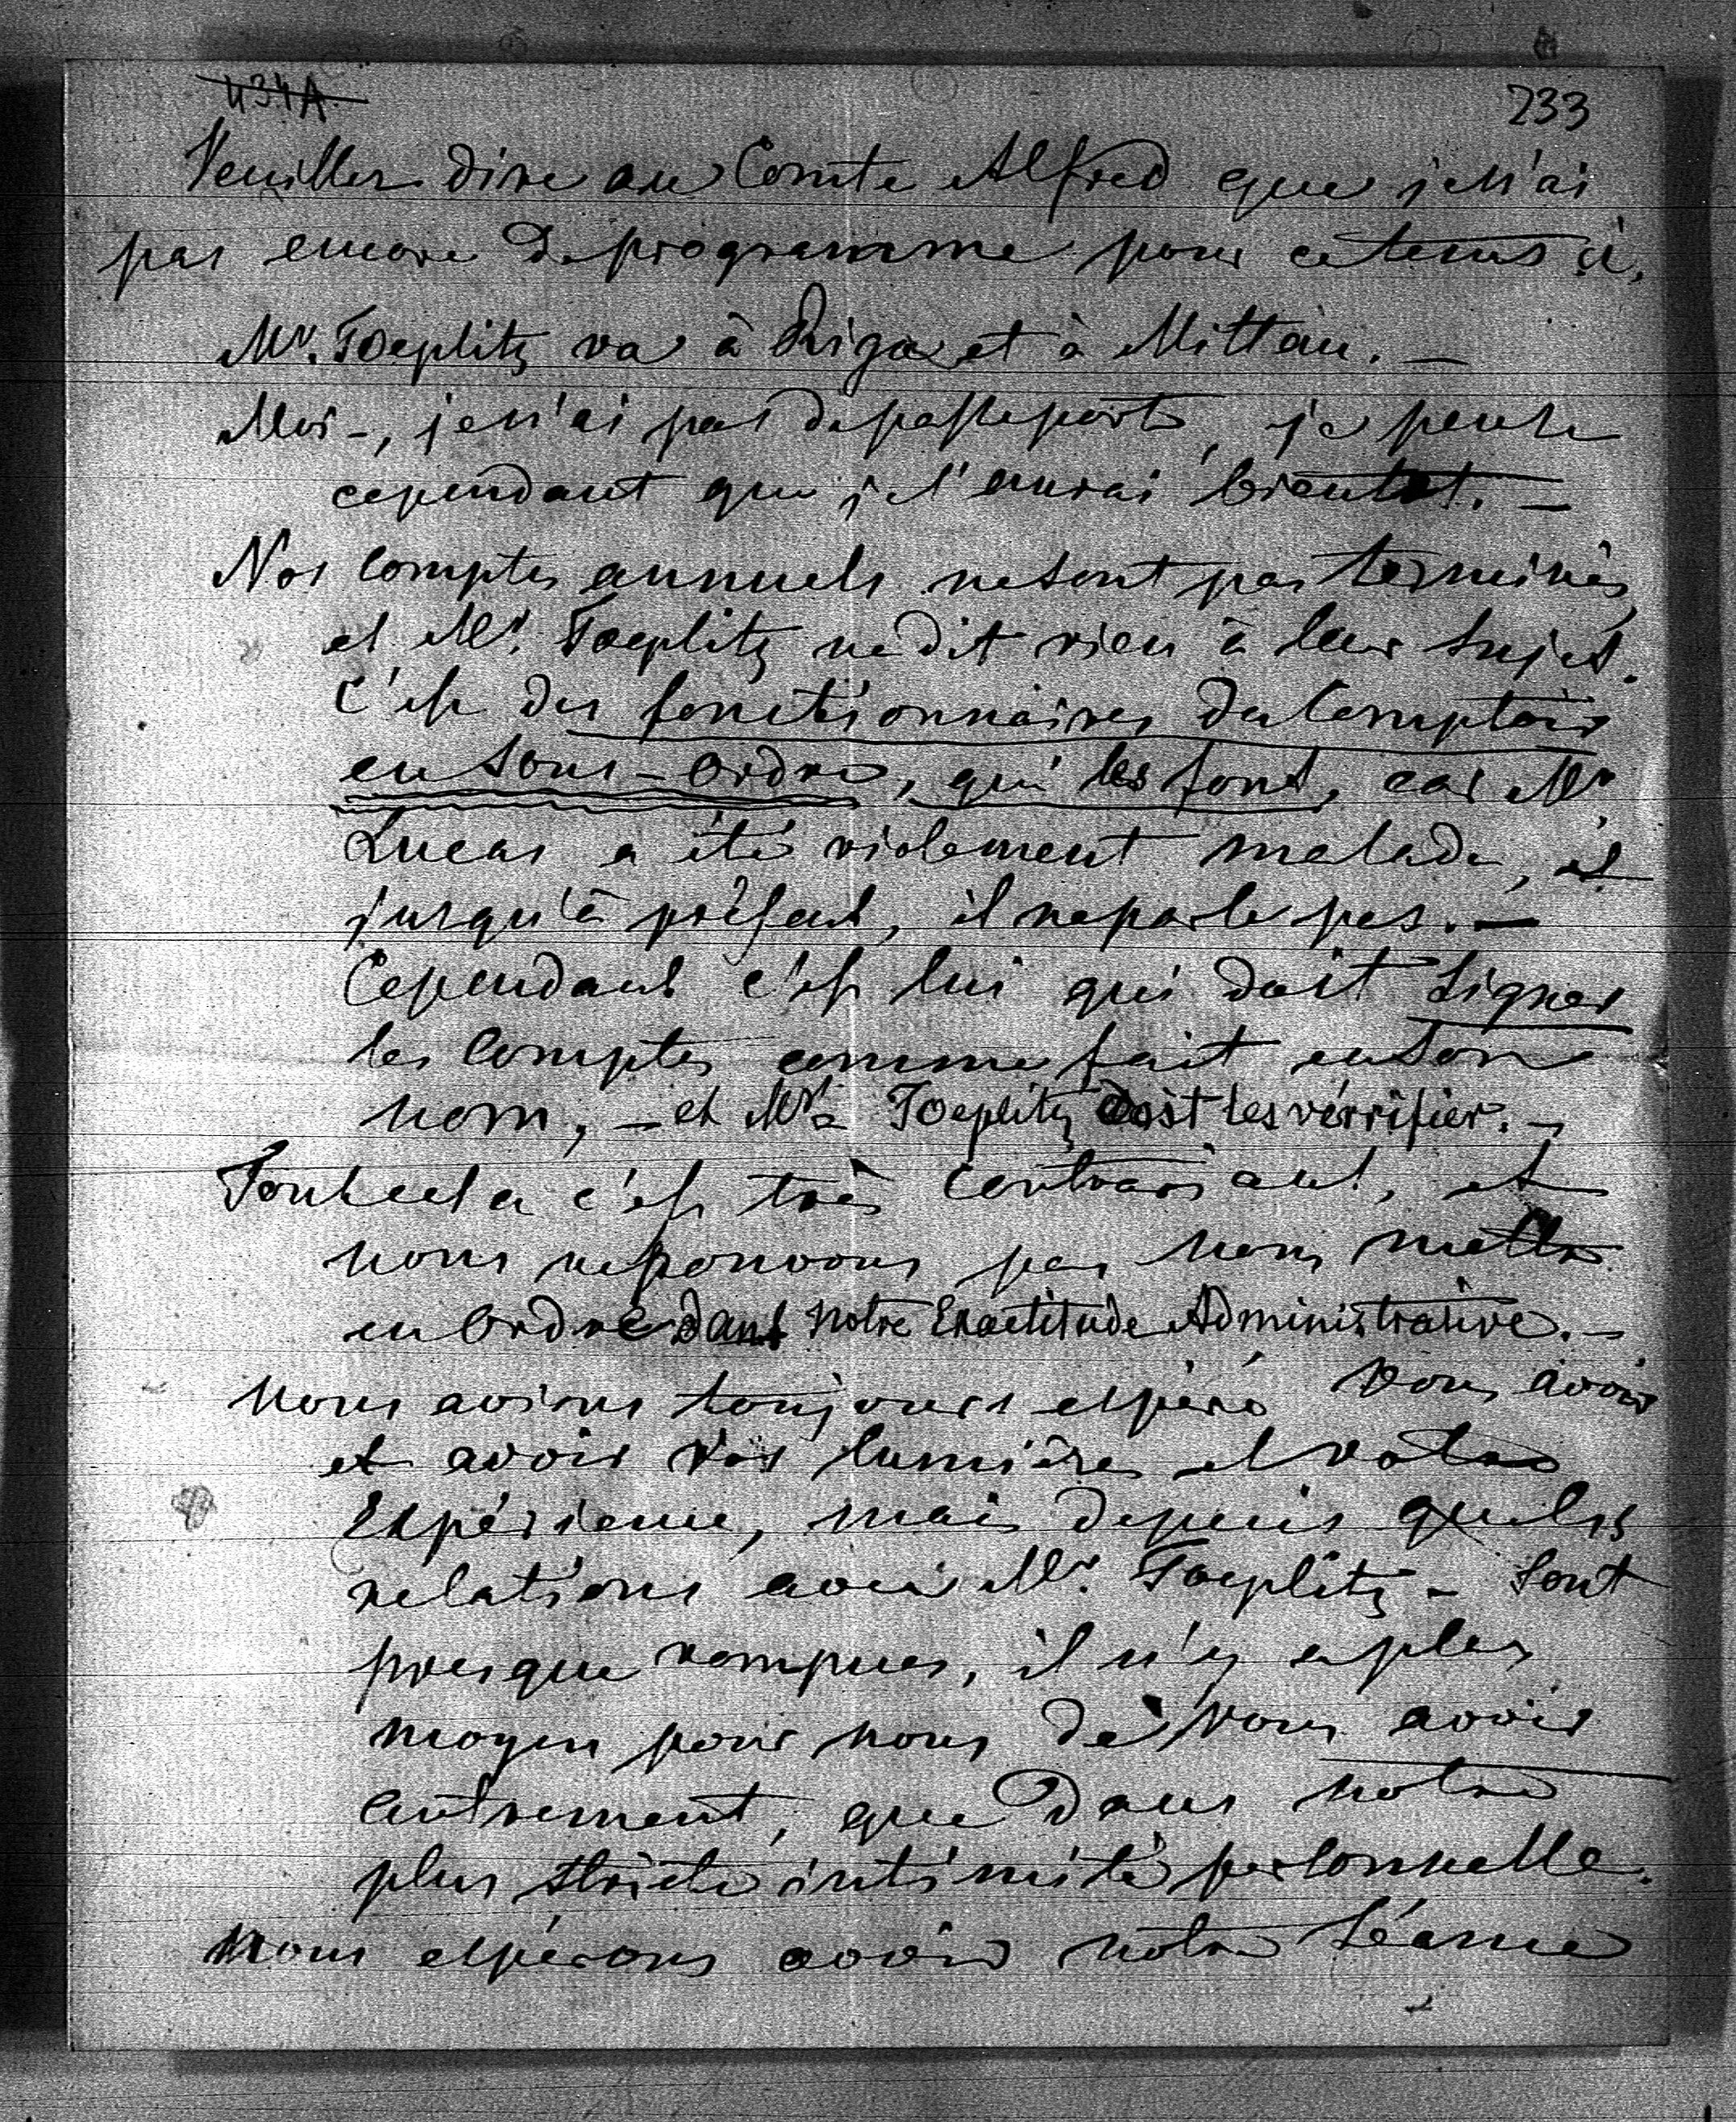 434A
233
Veuillez dire au Comte Alfred que je n'ai
pas encore de programme pour ce tems ci,
Mr. Toeplitz va à Riga et à Mittau. —
Moi -, je n'ai pas de passeport, je pense
cependant que je l'aurai bientot. —
Nos comptes annuels ne sont pas terminés
et Mr. Toeplitz ne dit rien à leur sujet.
C'est des fonctionnaires du Comptoir
en sous-ordre, qui les font, car Mr
Lucas a été violement malade, et
jusqu'à présent, il ne parle pas. —
Cependant c'est lui qui doit signer
les comptes comme fait en son
nom, — et Mr Toeplitz doit les vérrifier. —
Tout cela c'est très contrariant, et
nous ne pouvons pas nous mettre
en Ordre dans notre Exactitude Administrative. —
Nous avions toujours espéré vous avoir
et avoir vos lumières et votre
Expérience, mais depuis que les
relations avec Mr. Toeplitz - sont
presque rompues, il n'y a plus
moyen pour nous de vous avoir
autrement, que dans notre
plus stricte intimité personnelle.
Nous espérons avoir notre Séance